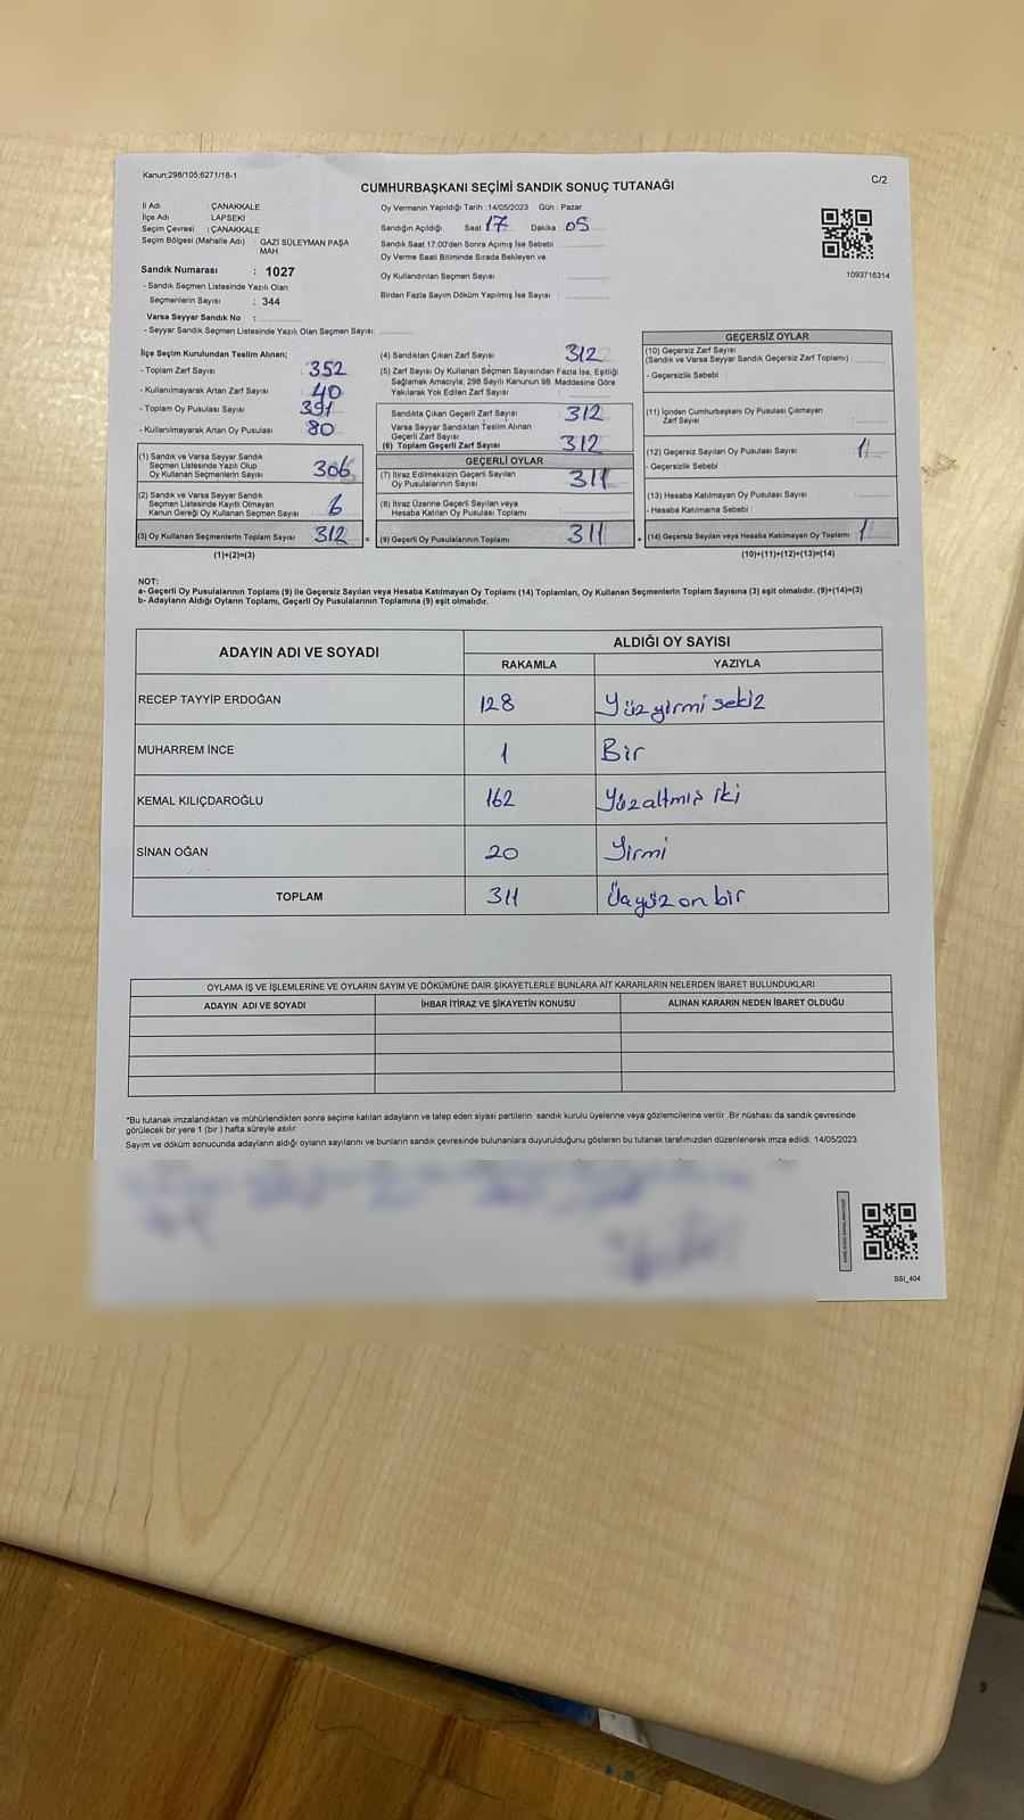 Kanun:298/105;6271/18-1
C/2
CUMHURBAŞKANI SEÇİMİ SANDIK SONUÇ TUTANAĞI
İl Adı ÇANAKKALE
İlçe Adı LAPSEKİ
Seçim Çevresi : ÇANAKKALE
Seçim Bölgesi (Mahalle Adı) GAZİ SÜLEYMAN PAŞA MAH
Sandık Numarası : 1027
- Sandık Seçmen Listesinde Yazılı Olan
Seçmenlerin Sayısı : 344
Varsa Seyyar Sandık No :
- Seyyar Sandık Seçmen Listesinde Yazılı Olan Seçmen Sayısı:
Oy Vermenin Yapıldığı Tarih :14/05/2023 Gün : Pazar
Sandığın Açıldığı Saat 17 Dakika 05
Sandık Saat 17:00'den Sonra Açımış İse Sebebi
Oy Verme Saati Bitiminde Sırada Bekleyen ve
Oy Kullandırılan Seçmen Sayısı
Birden Fazla Sayım Döküm Yapılmış İse Sayısı
1093716314
İlçe Seçim Kurulundan Teslim Alınan;
- Toplam Zarf Sayısı 352
- Kullanılmayarak Artan Zarf Sayısı 40
- Toplam Oy Pusulası Sayısı 391
- Kullanılmayarak Artan Oy Pusulası 80
(1) Sandık ve Varsa Seyyar Sandık
Seçmen Listesinde Yazılı Olup
Oy Kullanan Seçmenlerin Sayısı 306
(2) Sandık ve Varsa Seyyar Sandık
Seçmen Listesinde Kayıtlı Olmayan
Kanun Gereği Oy Kullanan Seçmen Sayısı 6
(3) Oy Kullanan Seçmenlerin Toplam Sayısı 312
(1)+(2)=(3)
(4) Sandıktan Çıkan Zarf Sayısı 312
(5) Zarf Sayısı Oy Kullanan Seçmen Sayısından Fazla İse, Eşitliği
Sağlamak Amacıyla, 298 Sayılı Kanunun 98. Maddesine Göre
Yakılarak Yok Edilen Zarf Sayısı
Sandıkta Çıkan Geçerli Zarf Sayısı 312
Varsa Seyyar Sandıktan Teslim Alınan
Geçerli Zarf Sayısı
(6) Toplam Geçerli Zarf Sayısı 312
GEÇERLİ OYLAR
(7) İtiraz Edilmeksizin Geçerli Sayılan
Oy Pusulalarının Sayısı 311
(8) İtiraz Üzerine Geçerli Sayılan veya
Hesaba Katılan Oy Pusulası Toplamı
= (9) Geçerli Oy Pusulalarının Toplamı 311
GEÇERSİZ OYLAR
(10) Geçersiz Zarf Sayısı
(Sandık ve Varsa Seyyar Sandık Geçersiz Zarf Toplamı)
- Geçersizlik Sebebi
(11) İçinden Cumhurbaşkanı Oy Pusulası Çıkmayan
Zarf Sayısı
(12) Geçersiz Sayılan Oy Pusulası Sayısı 1
- Geçersizlik Sebebi
(13) Hesaba Katılmayan Oy Pusulası Sayısı
- Hesaba Katılmama Sebebi
+ (14) Geçersiz Sayılan veya Hesaba Katılmayan Oy Toplamı 1
(10)+(11)+(12)+(13)=(14)
NOT:
a- Geçerli Oy Pusulalarının Toplamı (9) ile Geçersiz Sayılan veya Hesaba Katılmayan Oy Toplamı (14) Toplamları, Oy Kullanan Seçmenlerin Toplam Sayısına (3) eşit olmalıdır. (9)+(14)=(3)
b- Adayların Aldığı Oyların Toplamı, Geçerli Oy Pusulalarının Toplamına (9) eşit olmalıdır.
ADAYIN ADI VE SOYADI ALDIĞI OY SAYISI
RAKAMLA YAZIYLA
RECEP TAYYİP ERDOĞAN 128 Yüzyirmi sekiz
MUHARREM İNCE 1 Bir
KEMAL KILIÇDAROĞLU 162 Yüzaltmış iki
SİNAN OĞAN 20 Yirmi
TOPLAM 311 Üçyüz on bir
OYLAMA İŞ VE İŞLEMLERİNE VE OYLARIN SAYIM VE DÖKÜMÜNE DAİR ŞİKAYETLERLE BUNLARA AİT KARARLARIN NELERDEN İBARET BULUNDUKLARI
ADAYIN ADI VE SOYADI İHBAR İTİRAZ VE ŞİKAYETİN KONUSU ALINAN KARARIN NEDEN İBARET OLDUĞU
*Bu tutanak imzalandıktan ve mühürlendikten sonra seçime katılan adayların ve talep eden siyasi partilerin sandık kurulu üyelerine veya gözlemcilerine verilir. Bir nüshası da sandık çevresinde
görülecek bir yere 1 (bir) hafta süreyle asılır.
Sayım ve döküm sonucunda adayların aldığı oyların sayılarını ve bunların sandık çevresinde bulunanlara duyurulduğunu gösteren bu tutanak tarafımızdan düzenlenerek imza edildi. 14/05/2023
SSI_404